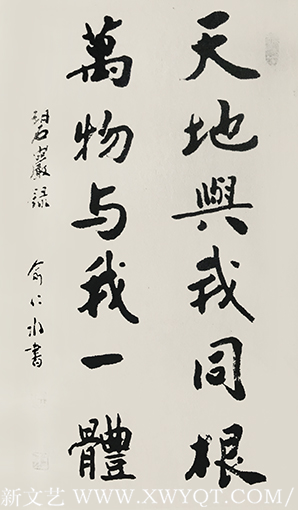 天地與我同根
萬物与我一體
碧巖錄 俞仁水書
新文艺 WWW.XWYQT.COM/